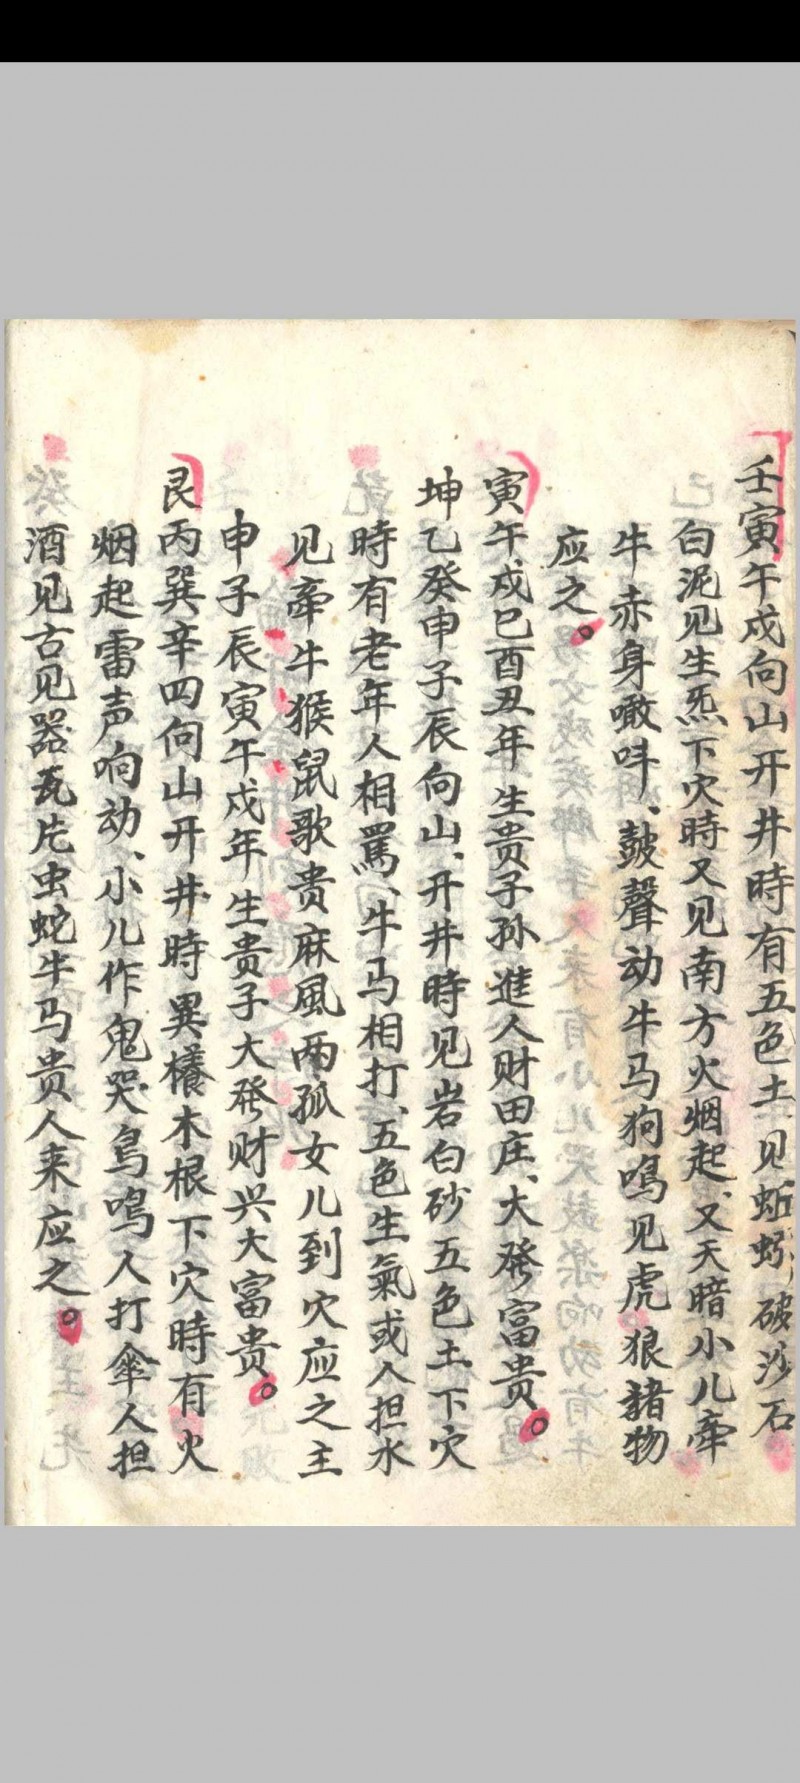 壬寅午戍向山开井時有五色土见蚯蚓破沙石
白泥见生炁下穴時又见南方火烟起、又天暗小儿牵
牛赤身噉吽、鼓聲动牛马狗鳴见虎狼諸物
应之。
寅午戍巳酉丑年生贵子孙進人财田庄、大發富贵。
坤乙癸申子辰向山、开井時见岩白砂五色土下穴
時有老年人相罵、牛马相打、五色生氣或人担水
见牵牛猴鼠歌贵麻風两孤女儿到穴应之主
申子辰寅午戍年生贵子大發财兴大富贵。
艮丙巽辛四向山开井時異樣木根下穴時有火
烟起雷声响动、小儿作鬼哭鳥鳴人打傘人担
酒见古见器瓦片虫蛇牛马贵人来应之。